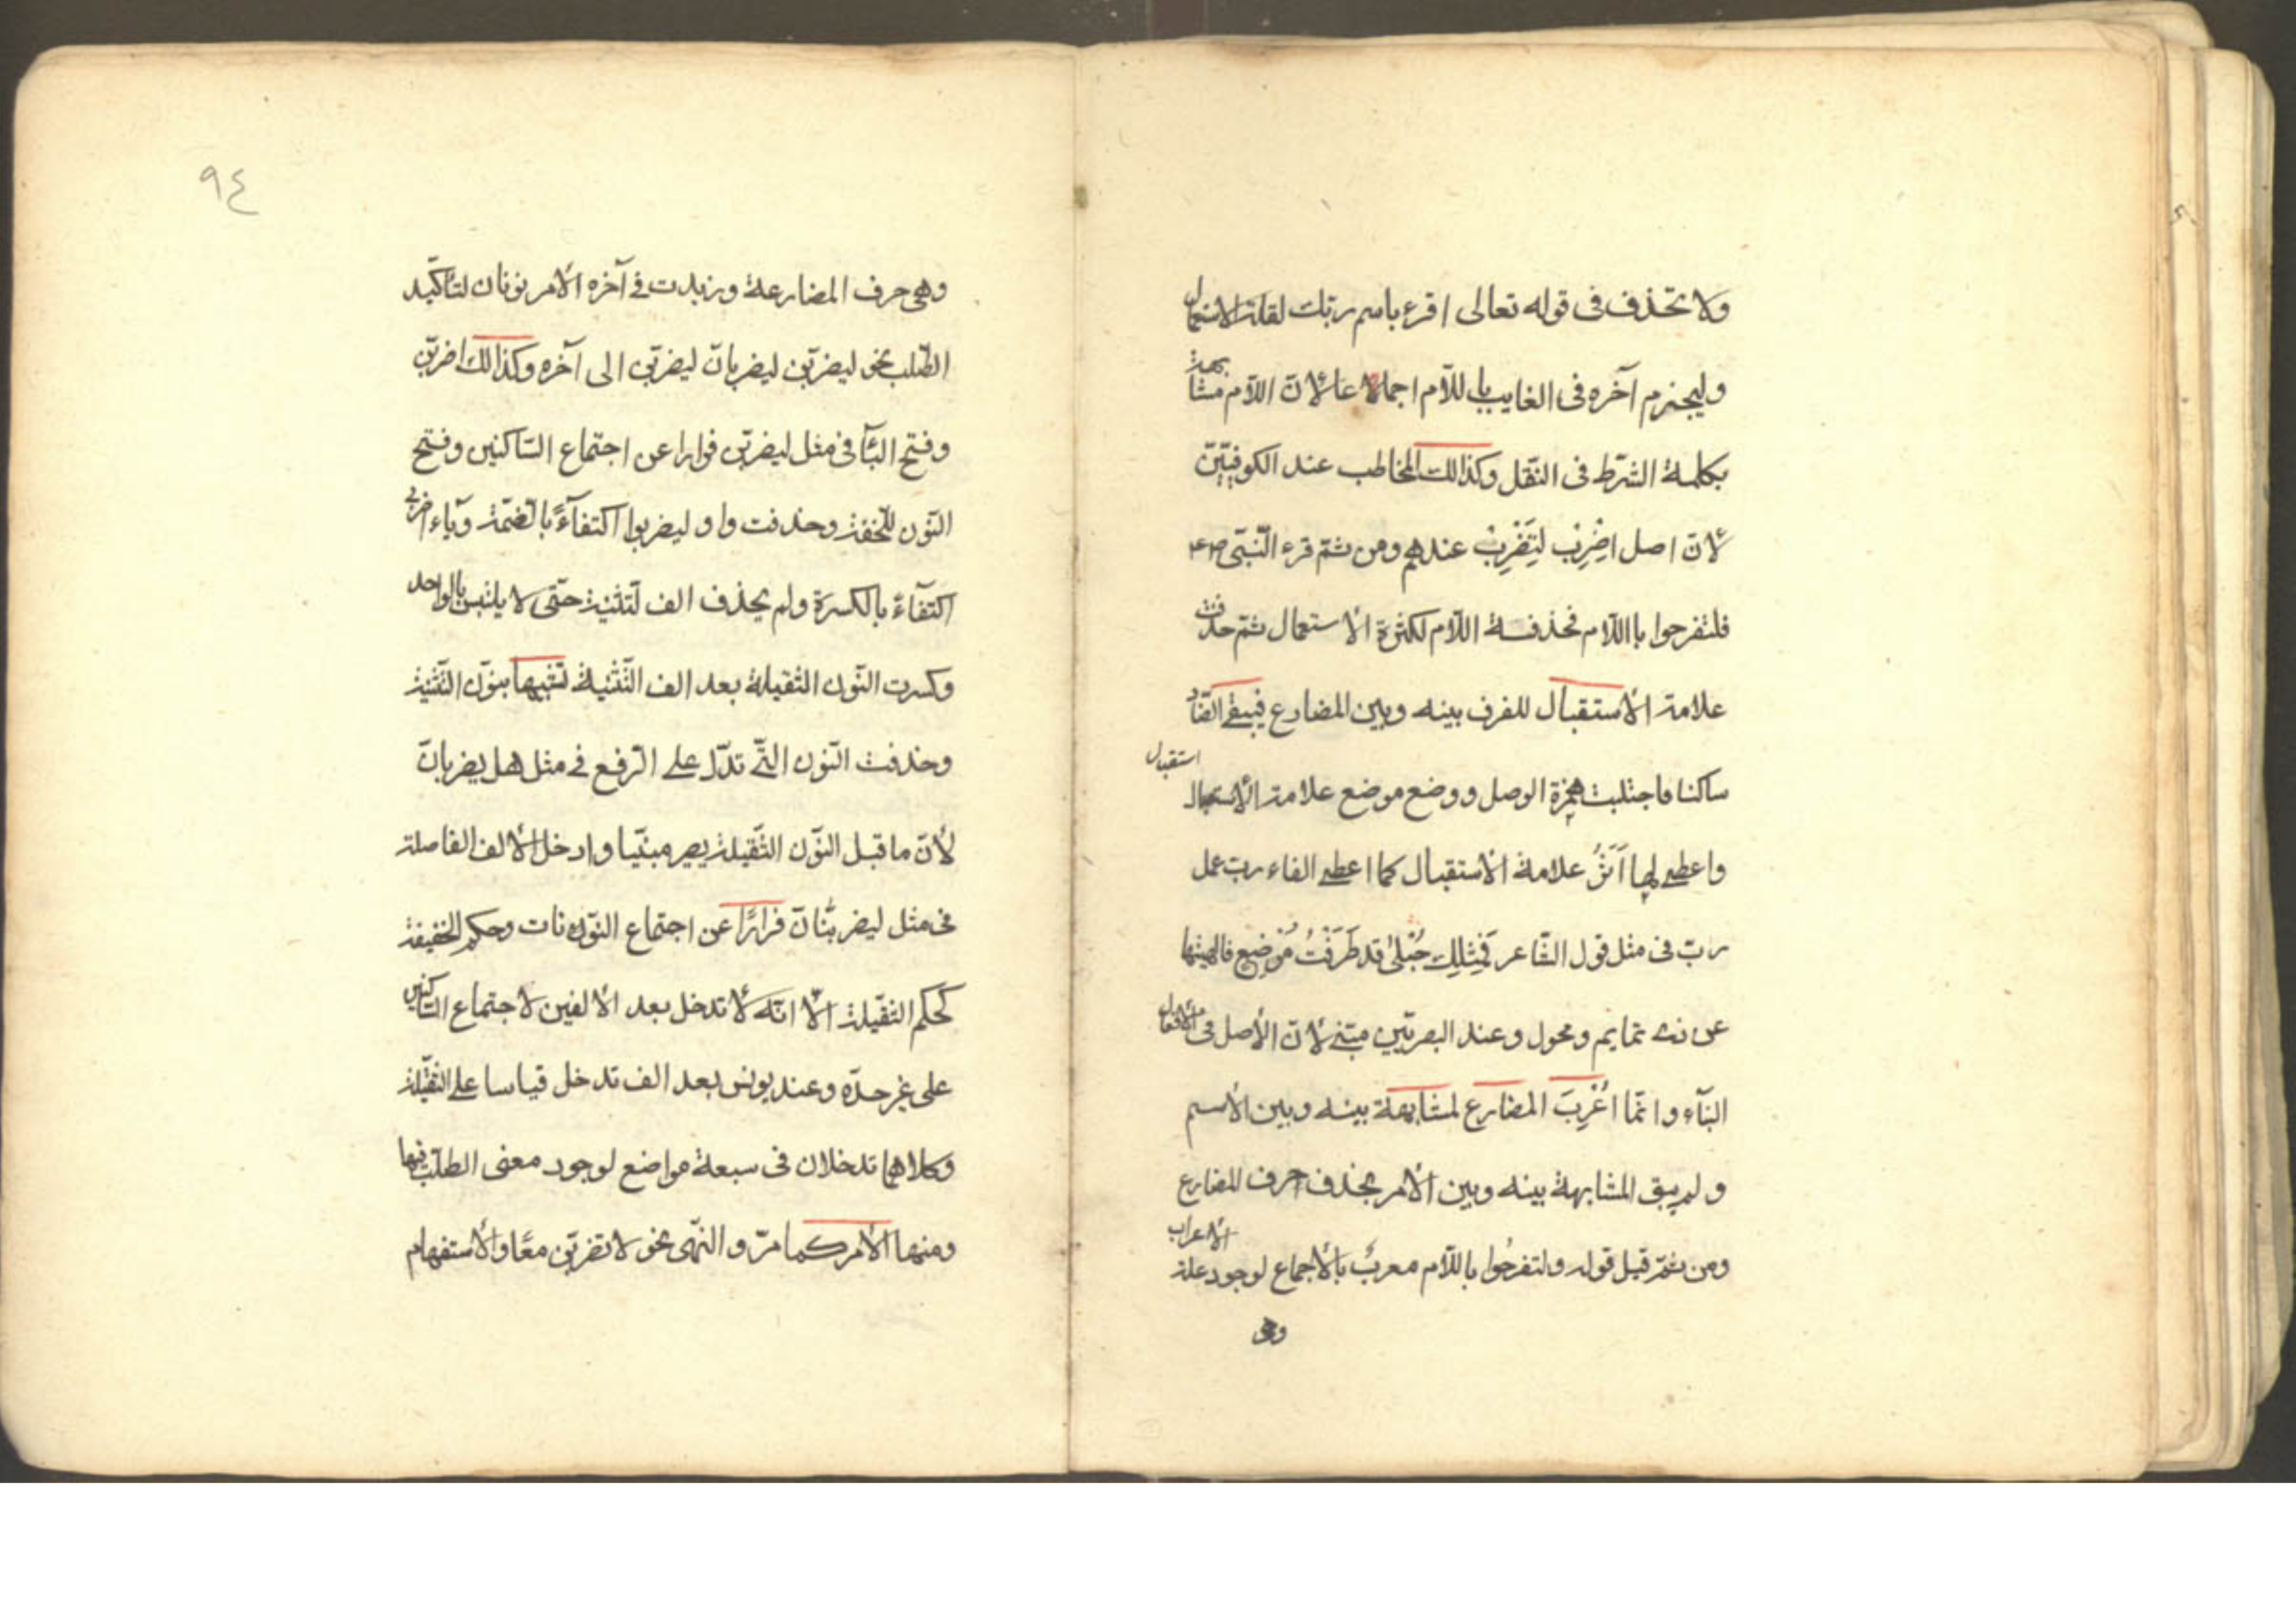 ولا تحذف فى قوله تعالى اقرء باسم ربك لقلة الاستعمال
وليجزم آخره فى الغايب باللآم اجماعا لأنّ اللآم مشابهة
بكلمة الشرّط فى النقل وكذالك المخاطب عند الكوفييّن
لأنّ اصل اضْرِبْ لِتَضْرِبْ عندهم ومن ثمّ قرء النّبىّ
فلتفرحوا بااللآم فحذفة اللآم لكثرة الأستعمال ثمّ حذفت
علامة الأستقبال للفرق بينه وبين المضارع فبقى الضّاد
ساكنا فاجتلبت همزة الوصل ووضع موضع علامة الأستقبال
واعطى لها اَثَرُ علامة الأستقبال كما اعطى الفاء ربّ عمل
ربّ فى مثل قول الشّاعر فَمِثْلِكِ حُبْلىٰ قد طَرَقْتُ مُرْضِعٍ فالهيتها
عن ذى تمايم ومحول وعند البصريّين مبنى لأنّ الأصل فى الأفعال
البنآء وانمّا اُعْرِبَ المضارع لمشابهة بينه وبين الأسم
ولم يبق المشابهة بينه وبين الأمر بحذف حرف المضارع
ومن ثمّ قيل قوله ولتفرحُوا باللآم معربٌ بالأجماع لوجود علة الأعراب
وهى
٩٤
وهى حرف المضارعة وزيدت فى آخره الأمر نونان لتأكيد
الطّلب نحو ليضربّن ليضربانّ ليضربّن الى آخره وكذالك اضربّن
وفتح البآء فى مثل ليضربّن فرارا عن اجتماع السّاكنين وفتح
النّون للخفة وحذفت واو ليضربوا اكتفآءً بالضّمة وياء اضربى
اكتفآءً بالكسرة ولم يحذف الف لتثنية حتّى لا يلتبس بالواحد
وكسرت النّون الثقيلة بعد الف التّثنية تشبيها بنون التّثنية
وحذفت النّون التّى تدّل على الرّفع فى مثل هل يضربانّ
لأنّ ما قبل النّون الثّقيلة يصير مبنيّا وادخل الألف الفاصلة
فى مثل ليضربنانّ فرارًا عن اجتماع النّونات وحكم الخفيفة
كحكم الثقّيلة الّا انّه لا تدخل بعد الألفين لاجتماع السّاكنين
على غير حدّه وعند يونس بعد الف تدخل قياسا على الثقّيلة
وكلاهما تدخلان فى سبعة مواضع لوجود معنى الطلّب فيها
ومنها الأمر كما مرّ والنهّى نحو لا تضربّن معًا والأستفهام